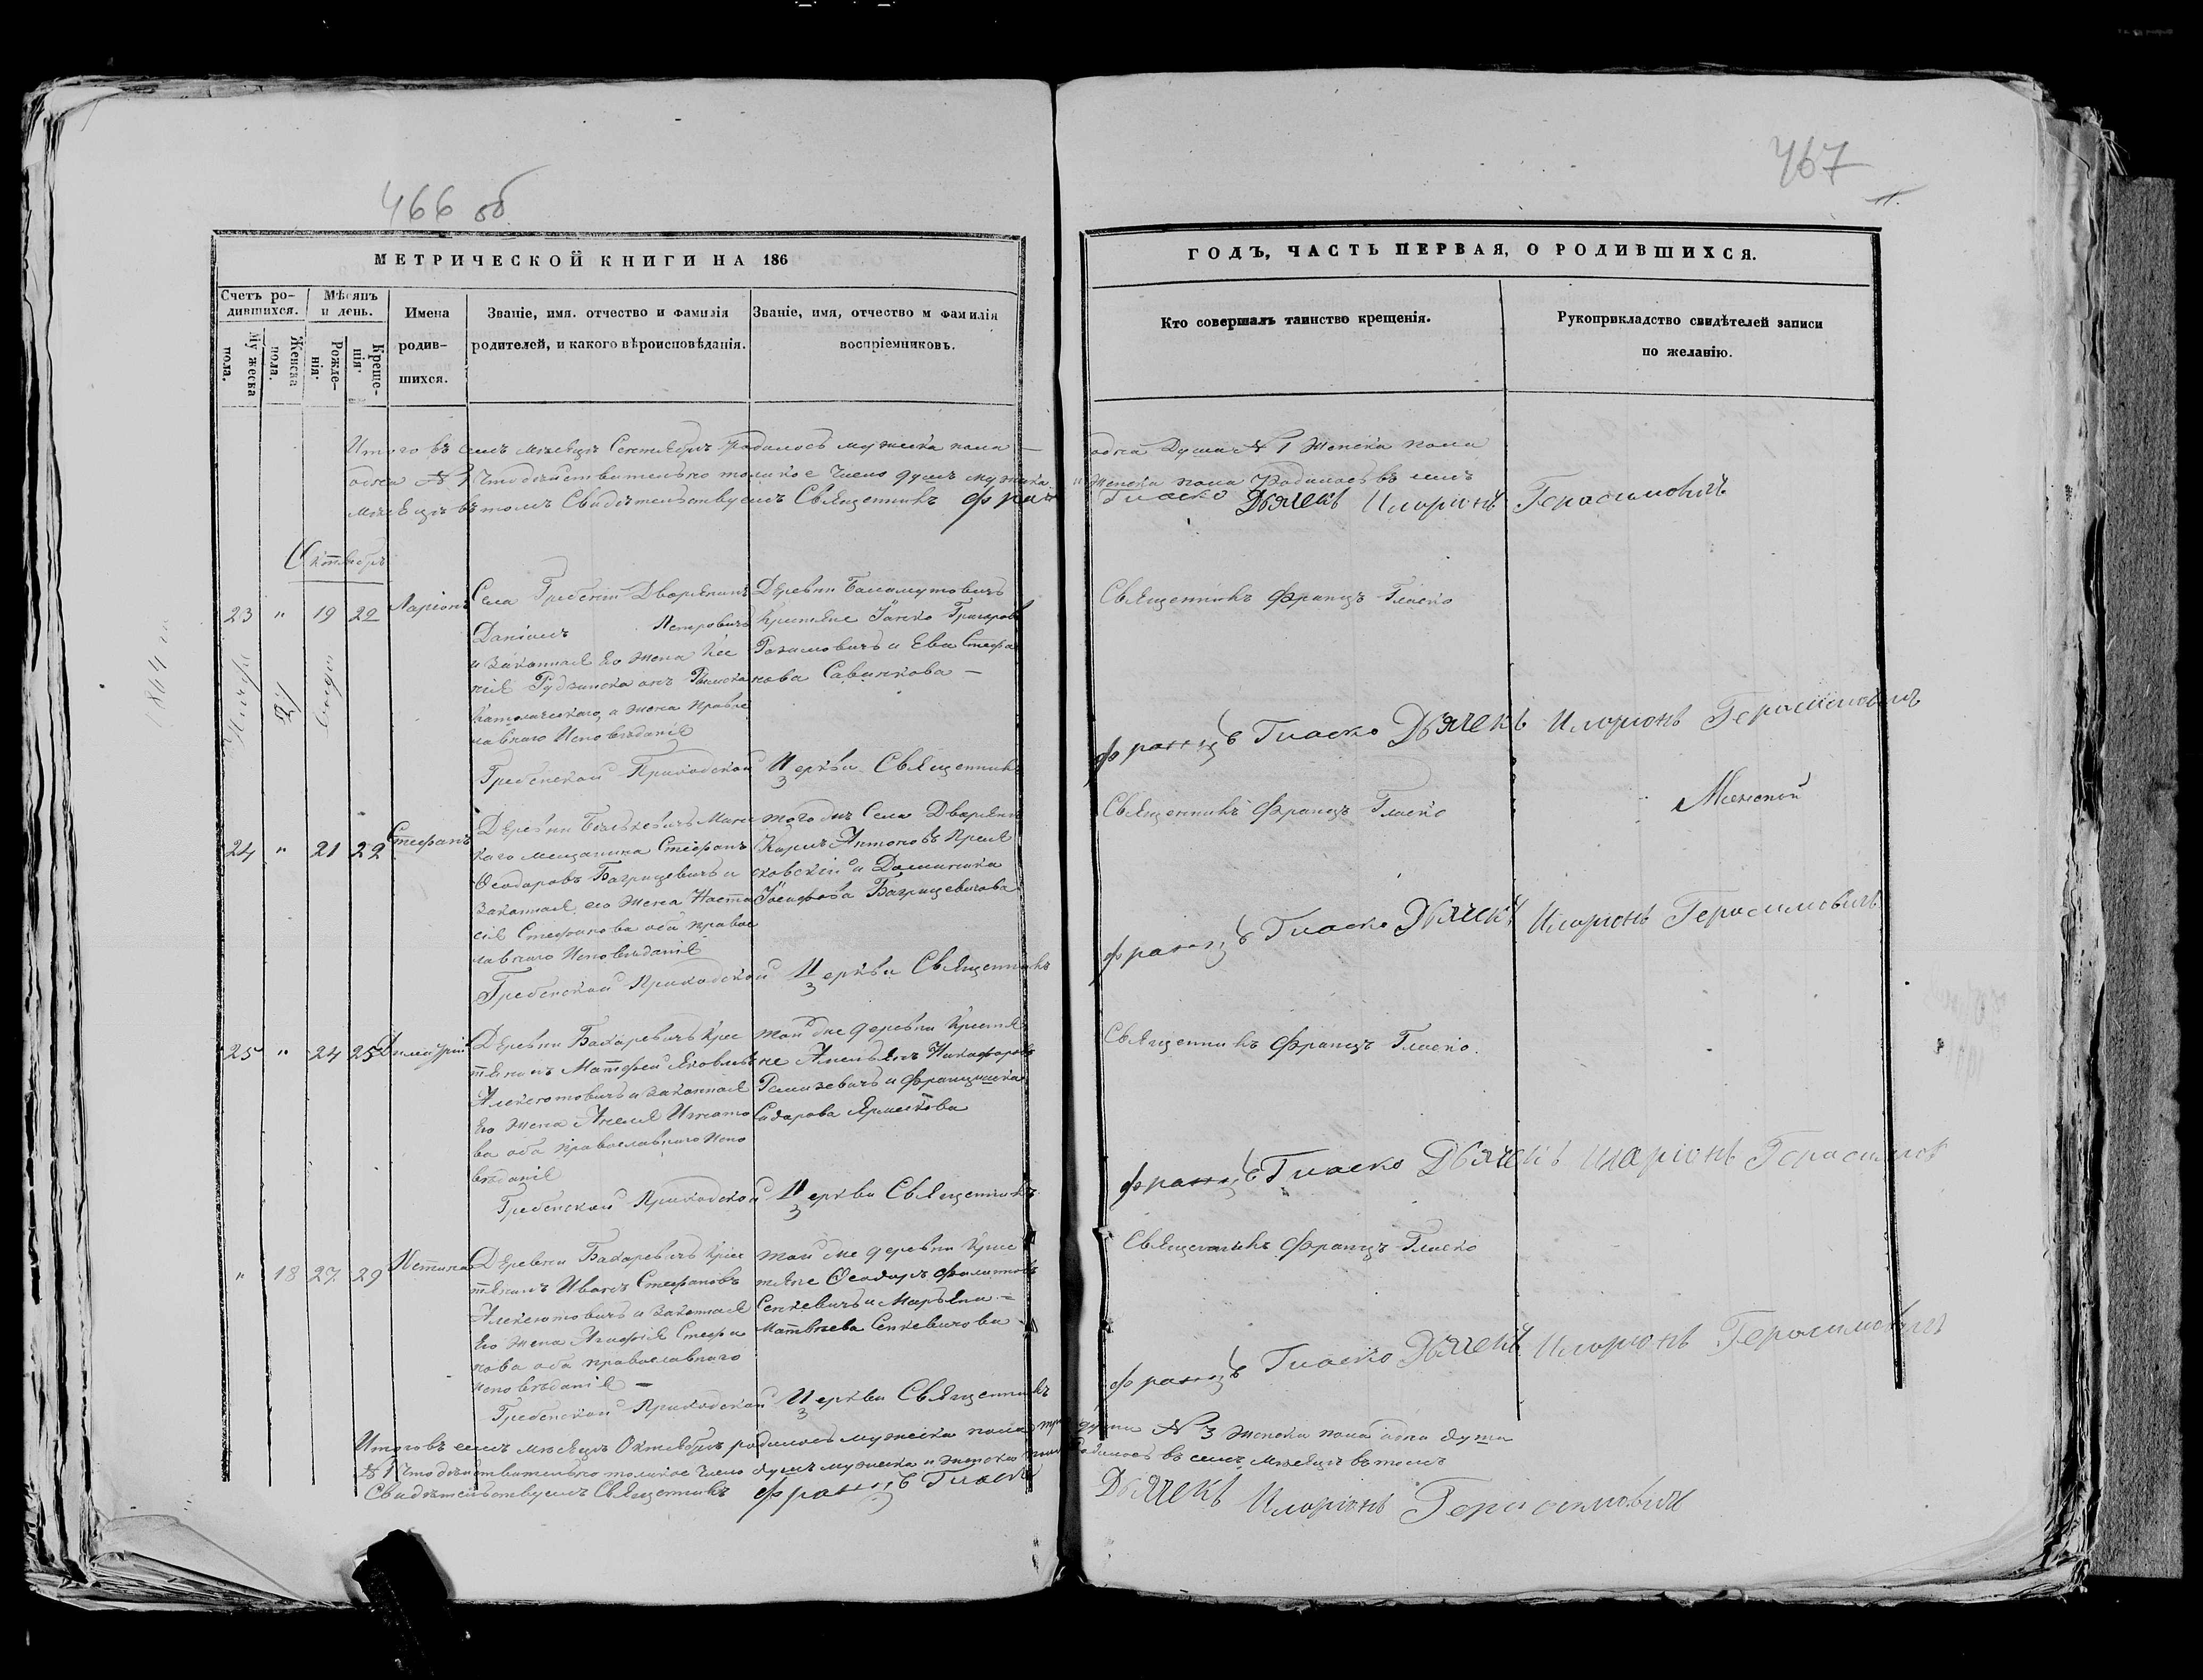 466 об
МЕТРИЧЕСКОЙ КНИГИ НА 186
Счетъ ро-
дившихся.
Мѣсяцъ
и день.
Имена
родив-
шихся.
Званіе, имя. отчество и фамилія
родителей, и какого вѣроисповѣданія.
Званіе, имя, отчество и фамилія
воспріемниковъ.
Мужеска
пола.
Женска
пола.
Рожде-
нія.
Креще-
нія.
Итого въ семъ мѣсяцѣ Сентябрѣ родилось мужеска пола —
одна № 1 Что дѣйствительно толикое число душъ мужика
мѣсяцѣ въ томъ Свидѣтельствуемъ Священникъ Фран
Октябрь
23 " 19 22 Ларіонъ
Села Гребень Дворянинъ
Даніилъ Петровичъ
и законная Его жена Ксе
нія онъ Римско
Католическаго, а жена Право
славнаго Исповѣданія
Деревни
Крестяне Янко Григоровъ
и Ева Стефа
нова Савинкова —
Гребенской Приходской Церкви Священникъ
24 " 21 22 Стефанъ
Деревни Минс
каго мещанина Стефанъ
Ѳеодоровъ Багрицевичъ и
законная его жена Наста
сія Стефанова оба правос
лавнаго Исповѣданія
того дтъ Села Дворянинъ
Карлъ Антоновъ
и Доминика
Іосифова Багрицевичова
Гребенской Приходской Церкви Священникъ
25 " 24 25 Димитрій
Деревни Бакаревичъ Крес
тянинъ Матфей Яковлевъ
Алексютовичъ и законная
Его жена Анеля Игнато
ва оба православнаго Испо
вѣданія
той дне деревни Крестя
не Емельянъ Никифоровъ
и Францишка
Сидорова Ярмошкова
Гребенской Приходской Церкви Священникъ
" 18 27 29 Устина
Деревни Бакаревичъ Крес
тянинъ Иванъ Стефановъ
Алексютовичъ и законная
Его жена Агафія Стефа
нова оба православнаго
Исповѣданія —
той дне деревни Крес
тяне Ѳеодоръ Филиповъ
Сенкевичъ и Марьяна —
Матвѣева Сенкевичова
Гребенской Приходской Церкви Священникъ
Итого въ семъ мѣсяцѣ Октябрѣ родилось мужеска пола три
№ 1 Что дѣйствительно толикое число душъ мужеска и женска пола
Свидѣтельствуемъ Священникъ Францъ Гласко
467
ГОДЪ, ЧАСТЬ ПЕРВАЯ, О РОДИВШИХСЯ.
Кто совершалъ таинство крещенія.
Рукоприкладство свидѣтелей записи
по желанію.
одна Душа № 1 Женска пола
женска пола Родилось въ семъ
Гласко Дьячекъ Иларіонъ Герасимовичъ
Священникъ Францъ Гласко
Францъ Гласко Дьячекъ Иларіонъ Герасимовичъ
Священникъ Францъ Гласко
Францъ Гласко Дьячекъ Иларіонъ Герасимовичъ
Священникъ Францъ Гласко.
Францъ Гласко Дьячекъ Иларіонъ Герасимов
Священникъ Францъ Гласко
Францъ Гласко Дьячекъ Иларіонъ Герасимовичъ
души № 3 женска пола одна душа
родилось въ семъ мѣсяцѣ въ томъ
Дьячекъ Иларіонъ Герасимовичъ